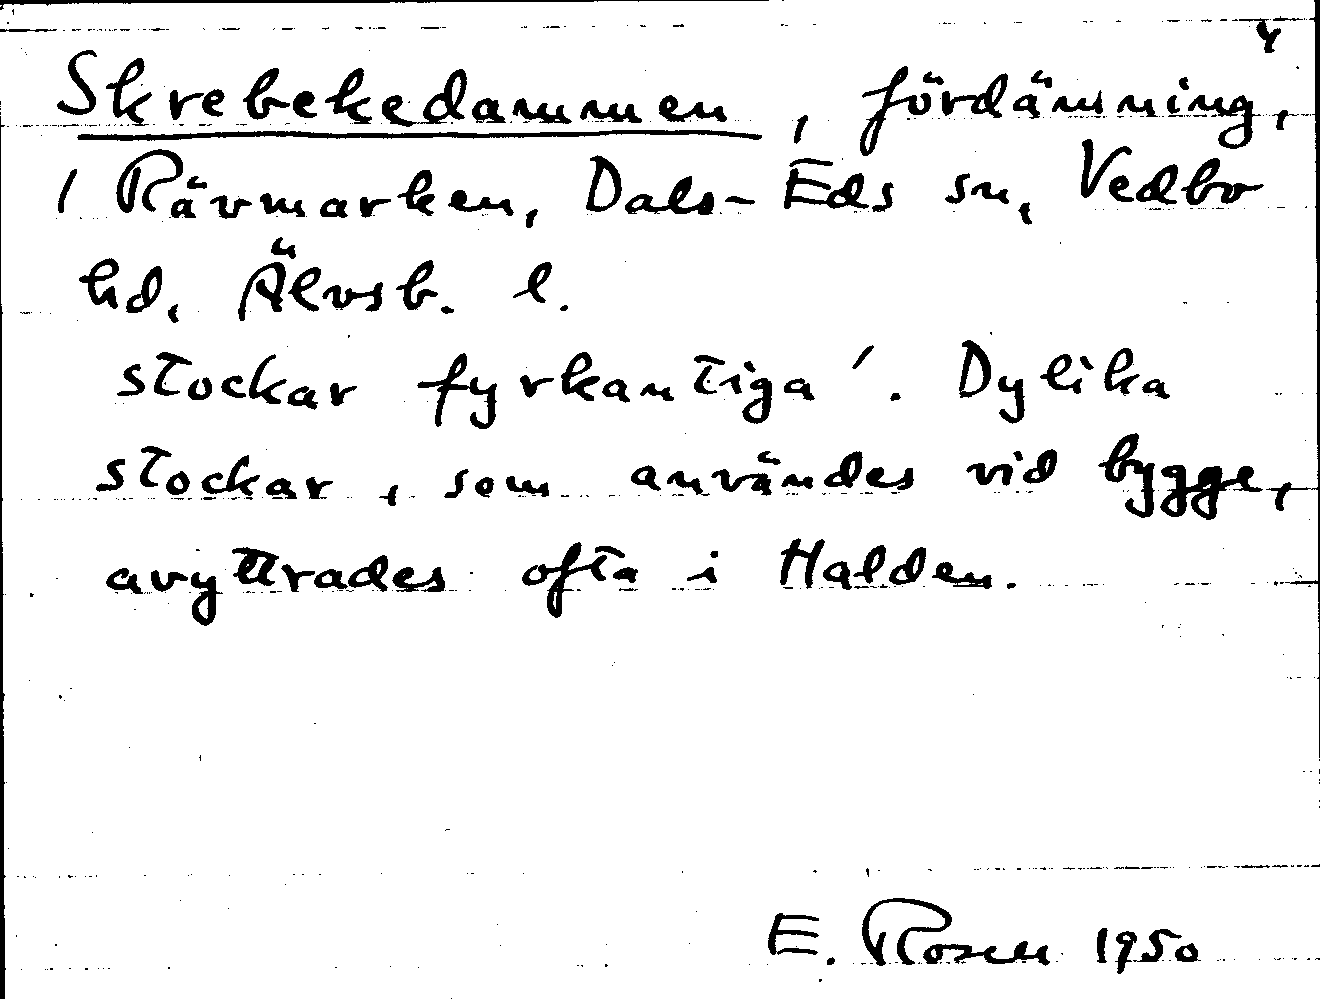 4
Skrebekedammen, fördämning,
/ Rävmarken, Dals-Eds sn, Vedbo
hd, Älvsb. l.
stockar fyrkantiga'. Dylika
stockar, som användes vid bygge,
avyttrades ofta i Halden.
E. Rosen 1950